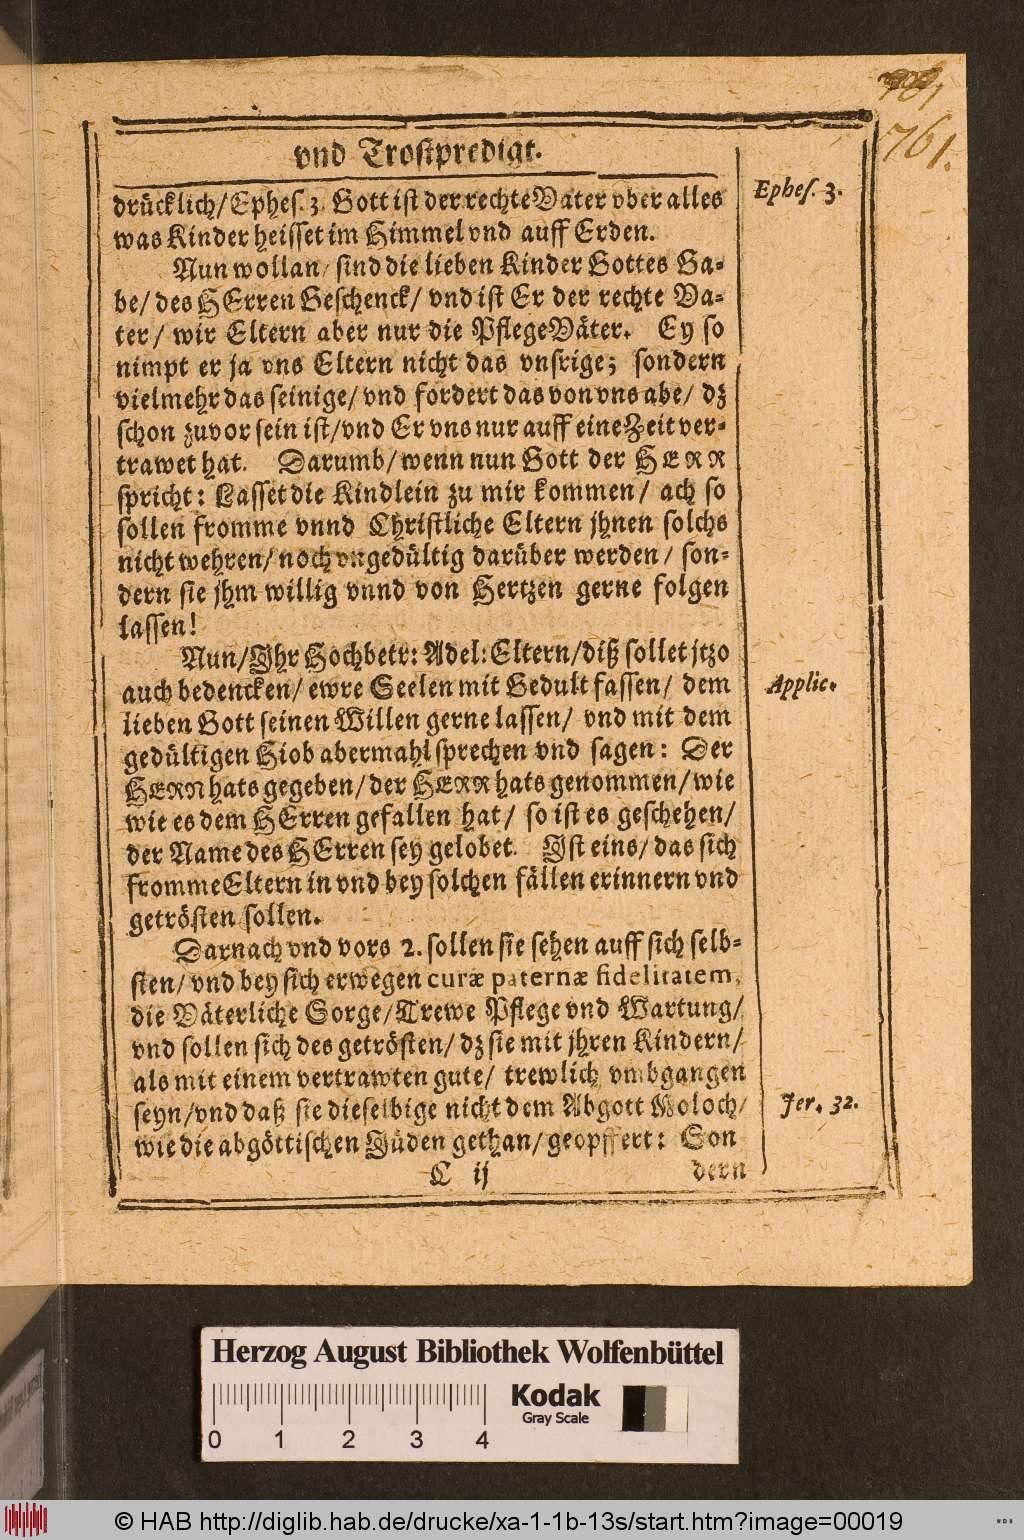 761.
vnd Trostpredigt.
drücklich/Ephes. 3. Gott ist der rechte Vater vber alles
Ephes. 3.
was Kinder heisset im Himmel vnd auff Erden.
Nun wollan/ sind die lieben Kinder Gottes Ga-
be/ des HErren Geschenck/ vnd ist Er der rechte Va-
ter/ wir Eltern aber nur die PflegeVäter. Ey so
nimpt er ja vns Eltern nicht das vnsrige; sondern
vielmehr das seinige/ vnd fordert das von vns abe/ dz
schon zuvor sein ist/vnd Er vns nur auff eine Zeit ver-
trawet hat. Darumb/wenn nun Gott der HERR
spricht: Lasset die Kindlein zu mir kommen/ ach so
sollen fromme vnnd Christliche Eltern jhnen solchs
nicht wehren/ noch vngedültig darüber werden/ son-
dern sie jhm willig vnnd von Hertzen gerne folgen
lassen!
Nun/Ihr Hochbetr: Adel: Eltern/diß sollet jtzo
Applic.
auch bedencken/ ewre Seelen mit Gedult fassen/ dem
lieben Gott seinen Willen gerne lassen/ vnd mit dem
gedültigen Hiob abermahl sprechen vnd sagen: Der
HERR hats gegeben/der HERR hats genommen/wie
wie es dem HErren gefallen hat/ so ist es geschehen/
der Name des HErren sey gelobet. Ist eins/ das sich
fromme Eltern in vnd bey solchen fällen erinnern vnd
getrösten sollen.
Darnach vnd vors 2. sollen sie sehen auff sich selb-
sten/ vnd bey sich erwegen curæ paternæ fidelitatem,
die Väterliche Sorge/Trewe Pflege vnd Wartung/
vnd sollen sich des getrösten/ dz sie mit jhren Kindern/
als mit einem vertrawten gute/ trewlich vmbgangen
seyn/vnd daß sie dieselbige nicht dem Abgott Moloch/
Jer. 32.
wie die abgöttischen Jüden gethan/geopffert: Son
C ij dern
Herzog August Bibliothek Wolfenbüttel
Kodak
Gray Scale
0 1 2 3 4
© HAB http://diglib.hab.de/drucke/xa-1-1b-13s/start.htm?image=00019